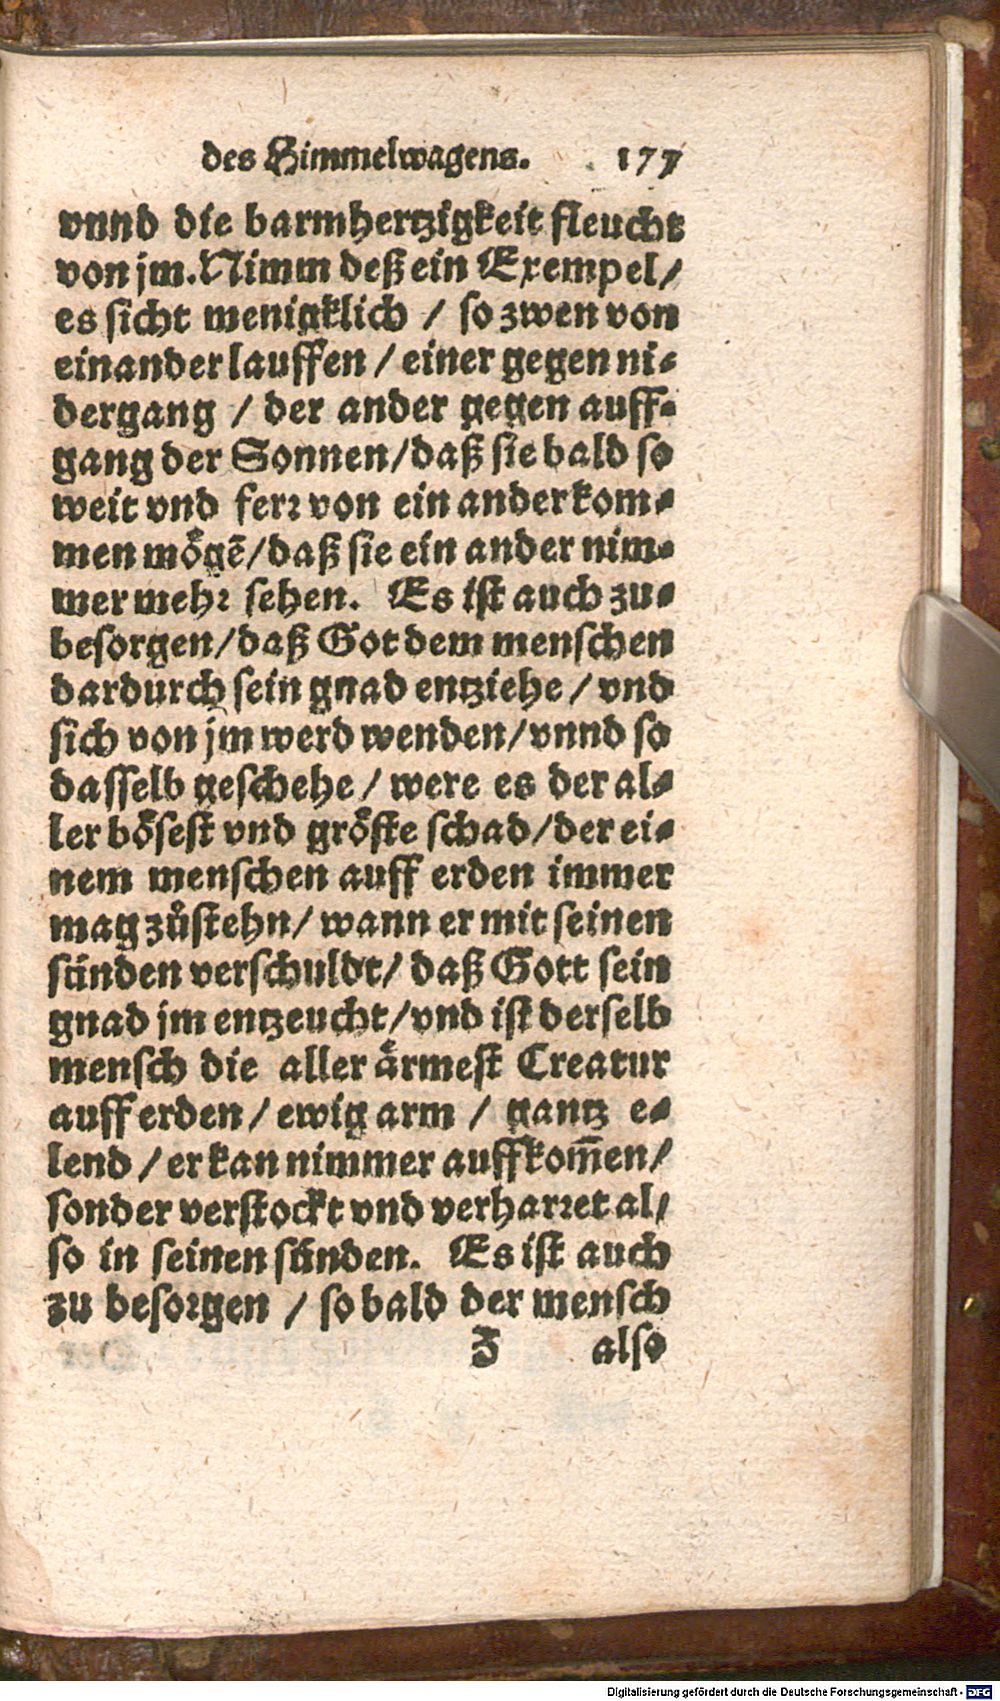 des Himmelwagens. 177
vnnd die barmhertzigkeit fleucht
von jm. Nimm deß ein Exempel/
es sicht menigklich / so zwen von
einander lauffen / einer gegen ni⸗
dergang / der ander gegen auff⸗
gang der Sonnen/daß sie bald so
weit vnd ferꝛ von ein ander kom⸗
men moͤgē/daß sie ein ander nim⸗
mer mehꝛ sehen. Es ist auch zu⸗
besorgen/daß Got dem menschen
dardurch sein gnad entziehe / vnd
sich von jm werd wenden/vnnd so
dasselb geschehe / were es der al⸗
ler boͤsest vnd groͤste schad/der ei⸗
nem menschen auff erden immer
mag zůstehn/ wann er mit seinen
sünden verschuldt/ daß Gott sein
gnad jm entzeucht/vnd ist derselb
mensch die aller aͤrmest Creatur
auff erden / ewig arm / gantz e⸗
lend / er kan nimmer auffkom̄en/
sonder verstockt vnd verharꝛet al/
so in seinen sünden. Es ist auch
zu besoꝛgen / so bald der mensch
Z also
Digitalisierung gefördert durch die Deutsche Forschungsgemeinschaft - DFG